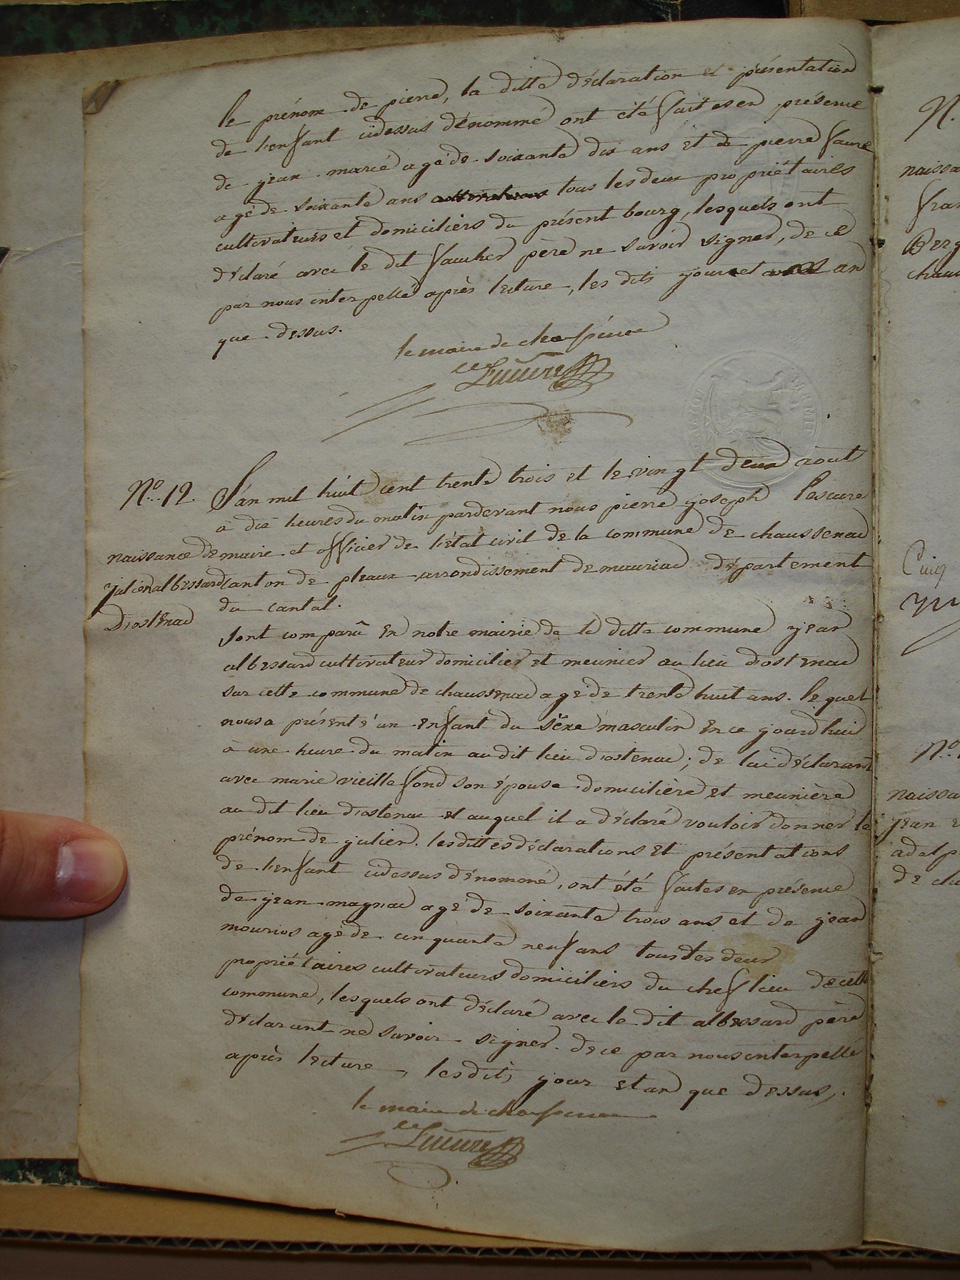 le prénom de pierre, la ditte déclaration et présentation
de l'enfant cidessus dénommé ont été faites en présence
de jean marié agé de soixante dix ans et de pierre faure
agé de soixante ans tous les deux propriétaires
cultivateurs et domiciliers du présent bourg, lesquels ont
déclaré avec le dit faucher père ne savoir signer, de ce
par nous interpellé après lecture, les dits jour et an
que dessus.
le maire de chaussenac
N°. 12. L'an mil huit cent trente trois et le vingt deux août
à dix heures du matin pardevant nous pierre joseph Lascure
maire et officier de l'état civil de la commune de chaussenac
canton de pleaux arrondissement de mauriac département
du cantal.
naissance de
julien albessard
D'ostenac
Sont comparu en notre mairie de la ditte commune jean
albessard cultivateur domicilier et meunier au lieu d'ostenac
sur cette commune de chaussenac agé de trente huit ans. lequel
nous a présenté un enfant du séxe masculin né ce jourd'hui
à une heure du matin au dit lieu d'ostenac; de lui déclarant
avec marie vieillefond son épouse domicilière et meunière
au dit lieu d'ostenac et auquel il a déclaré vouloir donner le
prénom de julien. les dittes déclarations et présentations
de l'enfant cidessus dénomé, ont été faites en présence
de jean magnac agé de soixante trois ans et de jean
mourios agé de cinquante neuf ans tous les deux
propriétaires cultivateurs domiciliers du chef lieu de cette
commune, lesquels ont déclaré avec le dit albessard père
déclarant ne savoir signer de ce par nous interpellé
après lecture, les dits jour et an que dessus,.
le maire de chaussenac
N.
naissa
fran
Berg
chau
Cuiq
N°.
naissa
jean
adelp
de ch